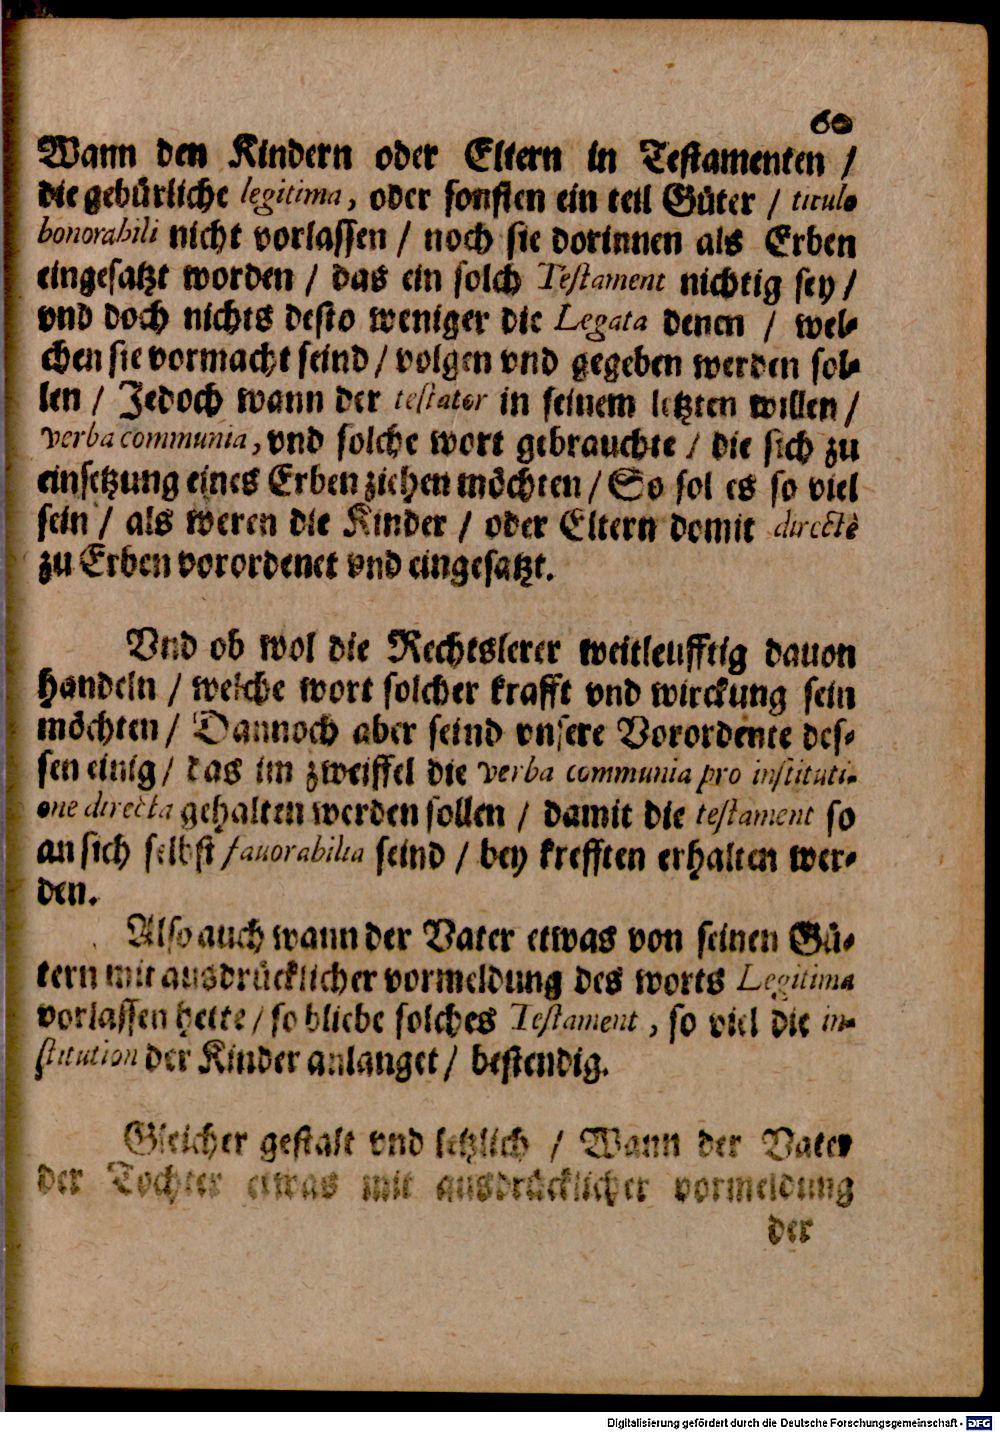 60
Wann den Kindern oder Eltern in Testamenten /
die gebürliche legitima, oder sonsten ein teil Güter / titulo
honorabili nicht vorlassen / noch sie dorinnen als Erben
eingesatzt worden / das ein solch Testament nichtig sey /
vnd doch nichts desto weniger die Legata denen / wel-
chen sie vormacht seind / volgen vnd gegeben werden sol-
len / Jedoch wann der testator in seinem letzten willen /
verba communia, vnd solche wort gebrauchte / die sich zu
einsetzung eines Erben ziehen möchten / So sol es so viel
sein / als weren die Kinder / oder Eltern domit directè
zu Erben verordenet vnd eingesatzt.
Vnd ob wol die Rechtslerer weitleufftig dauon
handeln / welche wort solcher krafft vnd wirckung sein
möchten / Dannoch aber seind vnsere Vorordente des-
sen einig / das im zweiffel die verba communia pro instituti-
one directa gehalten werden sollen / damit die testament so
an sich selbst fauorabilia seind / bey krefften erhalten wer-
den.
Also auch wann der Vater etwas von seinen Gü-
tern mit ausdrücklicher vormeldung des worts Legitima
vorlassen hette / so bliebe solches Testament, so viel die in-
stitution der Kinder anlanget / bestendig.
Gleicher gestalt vnd letzlich / Wann der Vater
der Tochter etwas mit ausdrücklicher vormeldung
der
Digitalisierung gefördert durch die Deutsche Forschungsgemeinschaft - DFG